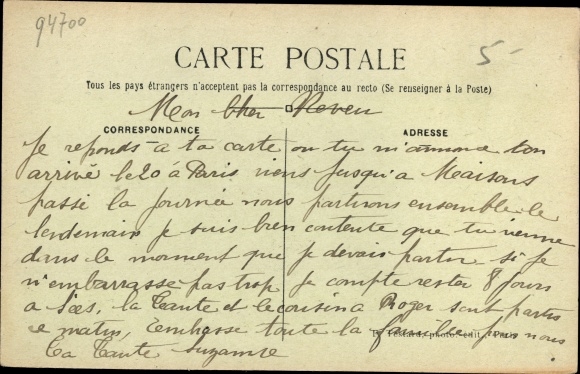 94700
5-
CARTE POSTALE
Tous les pays étrangers n'acceptent pas la correspondance au recto (Se renseigner à la Poste)
Mon Cher Neveu
CORRESPONDANCE
ADRESSE
Je reponds à ta carte ou tu m'annonce ton
arrivé le 20 à Paris viens jusqu'a Maisons
passé la journée nous partirons ensemble le
lendemain je suis bien contente que tu vienne
dans le moment que je devais partir si je
n'embarrasse pas trop je compte rester 8 jours
a la Tante et le cousin a Roger sont partis
ce matin, j'embrasse toute la famille pour nous
Ta Tante Suzanne
photo-édit.